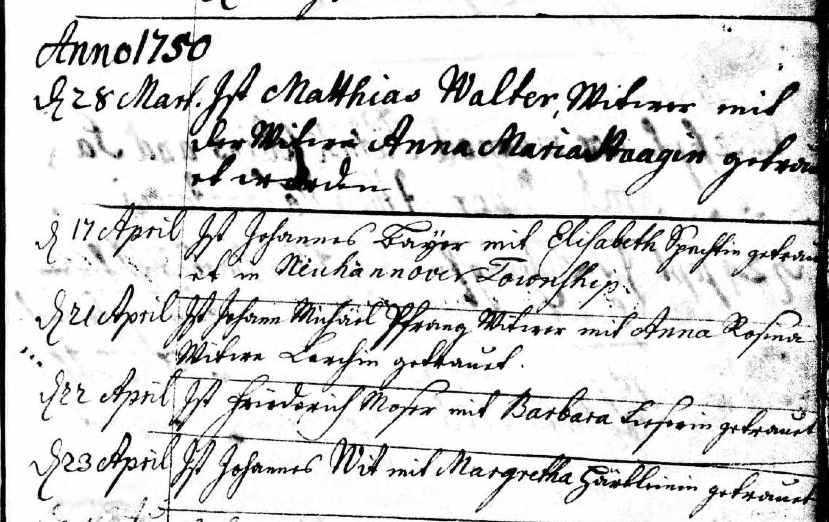 Anno 1750
d 28 Mart. Ist Matthias Walter, Witwer mit
der Witwe Anna Maria Haagin getrau
et worden
d 17 April Ist Johannes Bayer mit Elisabeth Spechtin getrau
et in Neuhannover Township.
d 21 April Ist Johann Michael Pfrang Witwer mit Anna Rosina
Witwe Lerchin getrauet.
d 22 April Ist Friederich Moser mit Barbara getrauet
d 23 April Ist Johannes Wit mit Margretha Härtleinin getrauet